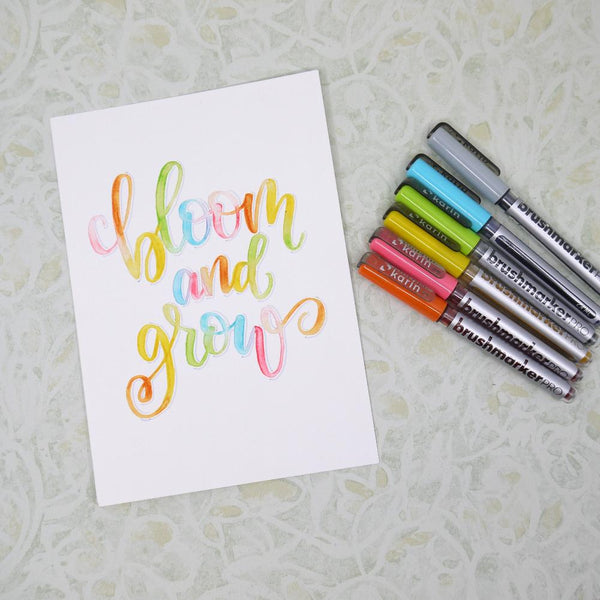 bloom
and
grow
brushmarker
karin
brushmarkerPRO
karin
brushmarkerPRO
karin
brushmarkerPRO
karin
brushmarkerPRO